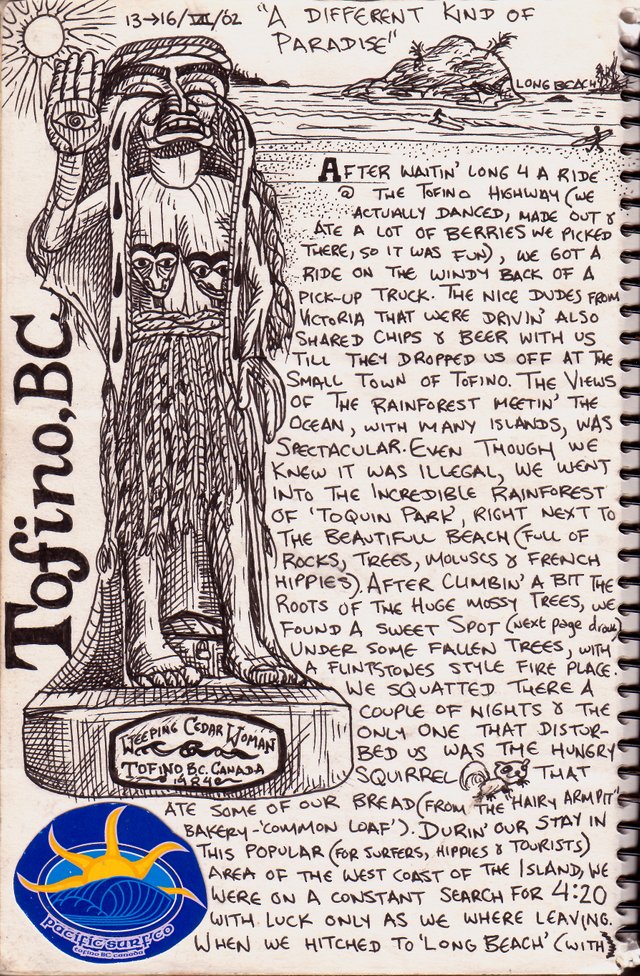 13→16/VII/02 "A DIFFERENT KIND OF
PARADISE"
LONG BEACH
Tofino, BC
AFTER WAITIN' LONG 4 A RIDE
@ THE TOFINO HIGHWAY (WE
ACTUALLY DANCED, MADE OUT &
ATE A LOT OF BERRIES WE PICKED
THERE, SO IT WAS FUN), WE GOT A
RIDE ON THE WINDY BACK OF A
PICK-UP TRUCK. THE NICE DUDES FROM
VICTORIA THAT WERE DRIVIN' ALSO
SHARED CHIPS & BEER WITH US
TILL THEY DROPPED US OFF AT THE
SMALL TOWN OF TOFINO. THE VIEWS
OF THE RAINFOREST MEETIN' THE
OCEAN, WITH MANY ISLANDS, WAS
SPECTACULAR. EVEN THOUGH WE
KNEW IT WAS ILLEGAL, WE WENT
INTO THE INCREDIBLE RAINFOREST
OF 'TOQUIN PARK', RIGHT NEXT TO
THE BEAUTIFULL BEACH (FULL OF
ROCKS, TREES, MOLUSCS & FRENCH
HIPPIES). AFTER CLIMBIN' A BIT THE
ROOTS OF THE HUGE MOSSY TREES, WE
FOUND A SWEET SPOT (NEXT PAGE DRAW)
UNDER SOME FALLEN TREES, WITH
A FLINTSTONES STYLE FIRE PLACE.
WE SQUATTED THERE A
COUPLE OF NIGHTS & THE
ONLY ONE THAT DISTUR-
BED US WAS THE HUNGRY
SQUIRREL THAT
ATE SOME OF OUR BREAD (FROM THE "HAIRY ARMPIT"
BAKERY-'COMMON LOAF'). DURIN' OUR STAY IN
THIS POPULAR (FOR SURFERS, HIPPIES & TOURISTS)
AREA OF THE WEST COAST OF THE ISLAND, WE
WERE ON A CONSTANT SEARCH FOR 4:20
WITH LUCK ONLY AS WE WHERE LEAVING.
WHEN WE HITCHED TO 'LONG BEACH' (WITH
WEEPING CEDAR WOMAN
TOFINO BC. CANADA
1984
PACIFIC SURF CO
tofino BC canada